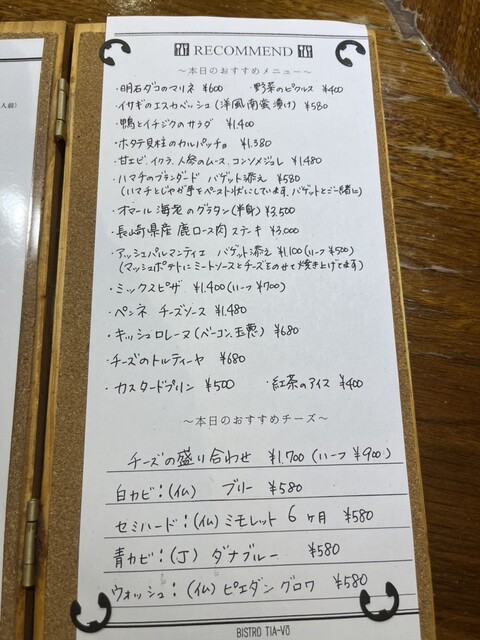 RECOMMEND
～本日のおすすめメニュー～
・明石ダコのマリネ ¥600 ・野菜のピクルス ¥400
・イサギのエスカベッシュ(洋風南蛮漬け) ¥580
・鴨とイチジクのサラダ ¥1.400
・ホタテ貝柱のカルパッチョ ¥1.380
・甘エビ、イクラ、人参のムース、コンソメジュレ ¥1.480
・ハマチのブランダード バゲット添え ¥580
(ハマチとじゃが芋をペースト状にしています。バゲットとご一緒に)
・オマール海老のグラタン(半身) ¥3,500
・長崎県産 鹿ロース肉ステーキ ¥3.000
・アッシュパルマンティエ バゲット添え ¥1,100(ハーフ ¥500)
(マッシュポテトにミートソースとチーズをのせて焼き上げてます)
・ミックスピザ ¥1.400(ハーフ ¥700)
・ペンネ チーズソース ¥1.480
・キッシュロレーヌ(ベーコン、玉葱) ¥680
・チーズのトルティーヤ ¥680
・カスタードプリン ¥500 ・紅茶のアイス ¥400
～本日のおすすめチーズ～
チーズの盛り合わせ ¥1.700(ハーフ ¥900)
白カビ：(仏) ブリー ¥580
セミハード：(仏)ミモレット 6ヶ月 ¥580
青カビ：(丁) ダナブルー ¥580
ウォッシュ：(仏)ピエダングロワ ¥580
BISTRO TIA-VŌ
人前)